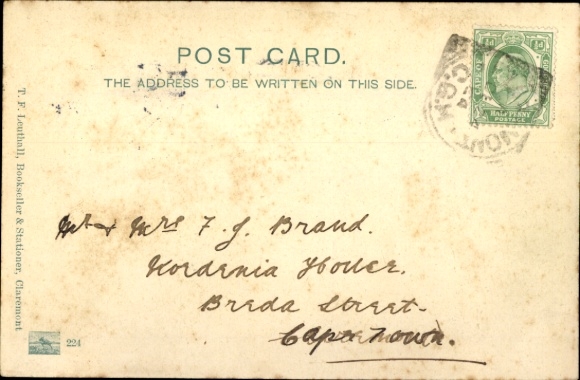 POST CARD.
THE ADDRESS TO BE WRITTEN ON THIS SIDE.
½d ½d
CAPE OF
HALF PENNY
POSTAGE
Mr & Mrs F. J. Brand.
House.
Breda Street.
Cape Town.
T. F. Leuthall, Bookseller & Stationer, Claremont
224